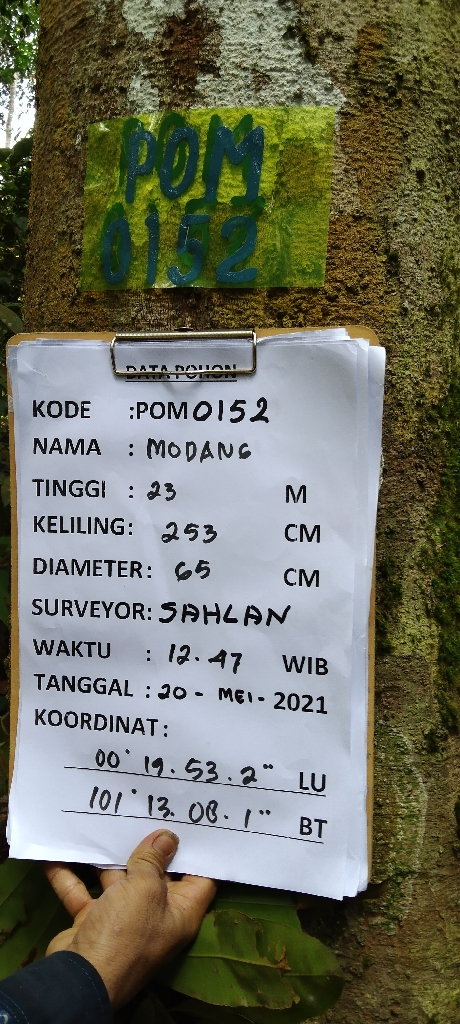 POM
0152
DATA POHON
KODE :POM0152
NAMA : MODANG
TINGGI : 23 M
KELILING: 253 CM
DIAMETER: 65 CM
SURVEYOR: SAHLAN
WAKTU : 12.47 WIB
TANGGAL : 20 - MEI - 2021
KOORDINAT:
00° 19. 53. 2" LU
101° 13. 08. 1" BT